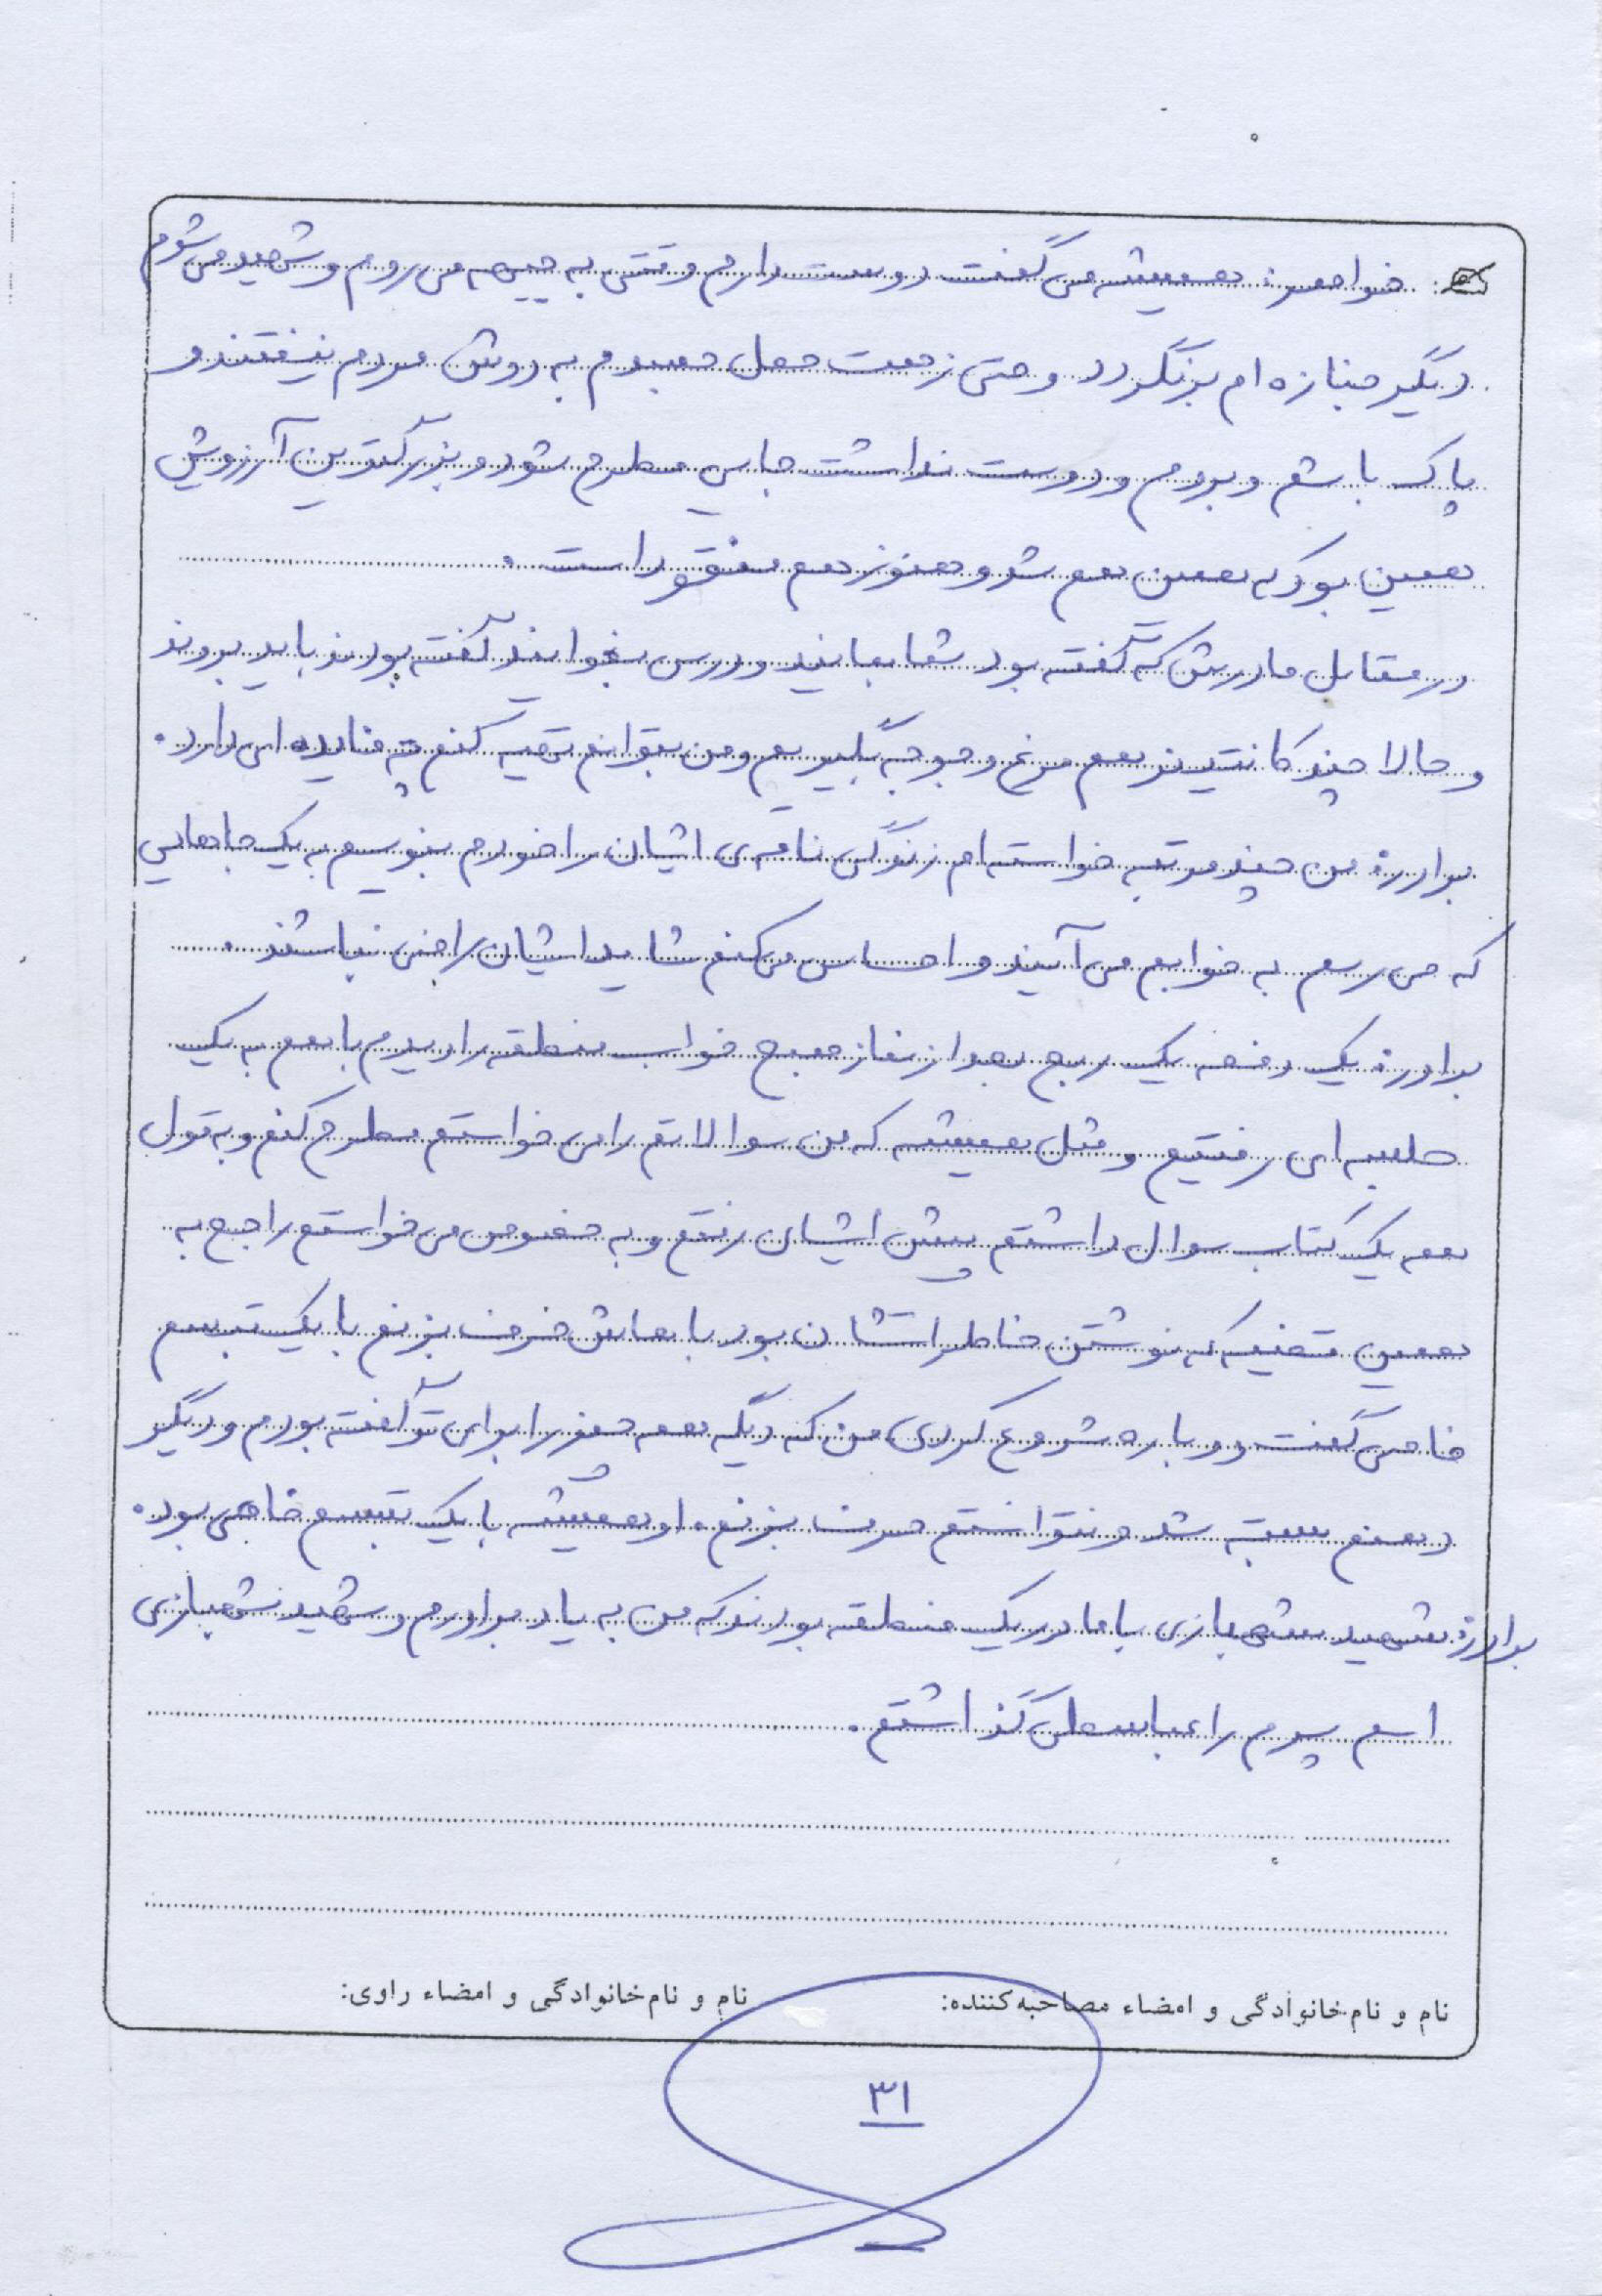 خواهر: همیشه می گفت دوست دارم وقتی به جبهه می روم و شهید می شوم
دیگر جنازه ام برنگردد و حتی زحمت حمل جسدم به دوش مردم نیفتد و
پاک باشم و بروم و دوست نداشت جایی مطرح شود و بزرگترین آرزویش
همین بود که همین هم شد و هنوز هم مفقود است.
در مقابل مادرش که گفته بود شما بمانید و درس بخوانید گفته بودند باید بروند
و حالا چند کانتینر هم مرغ و جوجه بگیریم و من بتوانم تهیه کنم چه فایده ای دارد.
برادر: من چند مرتبه خواسته ام زندگی نامه ی ایشان را خودم بنویسم به یک جاهایی
که می رسم به خوابم می آیند و احساس می کنم شاید ایشان راضی نباشند.
برادر: یک دفعه یک ربع بعد از نماز صبح خواب منطقه را دیدم با هم به یک
جلسه ای رفتیم و مثل همیشه که من سوالاتم را می خواستم مطرح کنم و به قول
همه یک کتاب سوال داشتم پیش ایشان رفتم و به خصوص می خواستم راجع به
همین قضیه که نوشتن خاطراتشان بود باهاش حرف بزنم با یک تبسم
خاصی گفت دوباره شروع کردی من که دیگه همه چیز را برای تو گفته بودم و دیگر
دهنم بسته شد و نتوانستم حرف بزنم. او همیشه با یک تبسم خاصی بود.
برادر: شهید شهبازی با ما در یک منطقه بودند که من به یاد برادرم و شهید شهبازی
اسم پسرم را عباسعلی گذاشتم.
نام و نام خانوادگی و امضاء مصاحبه کننده: نام و نام خانوادگی و امضاء راوی:
۳۱